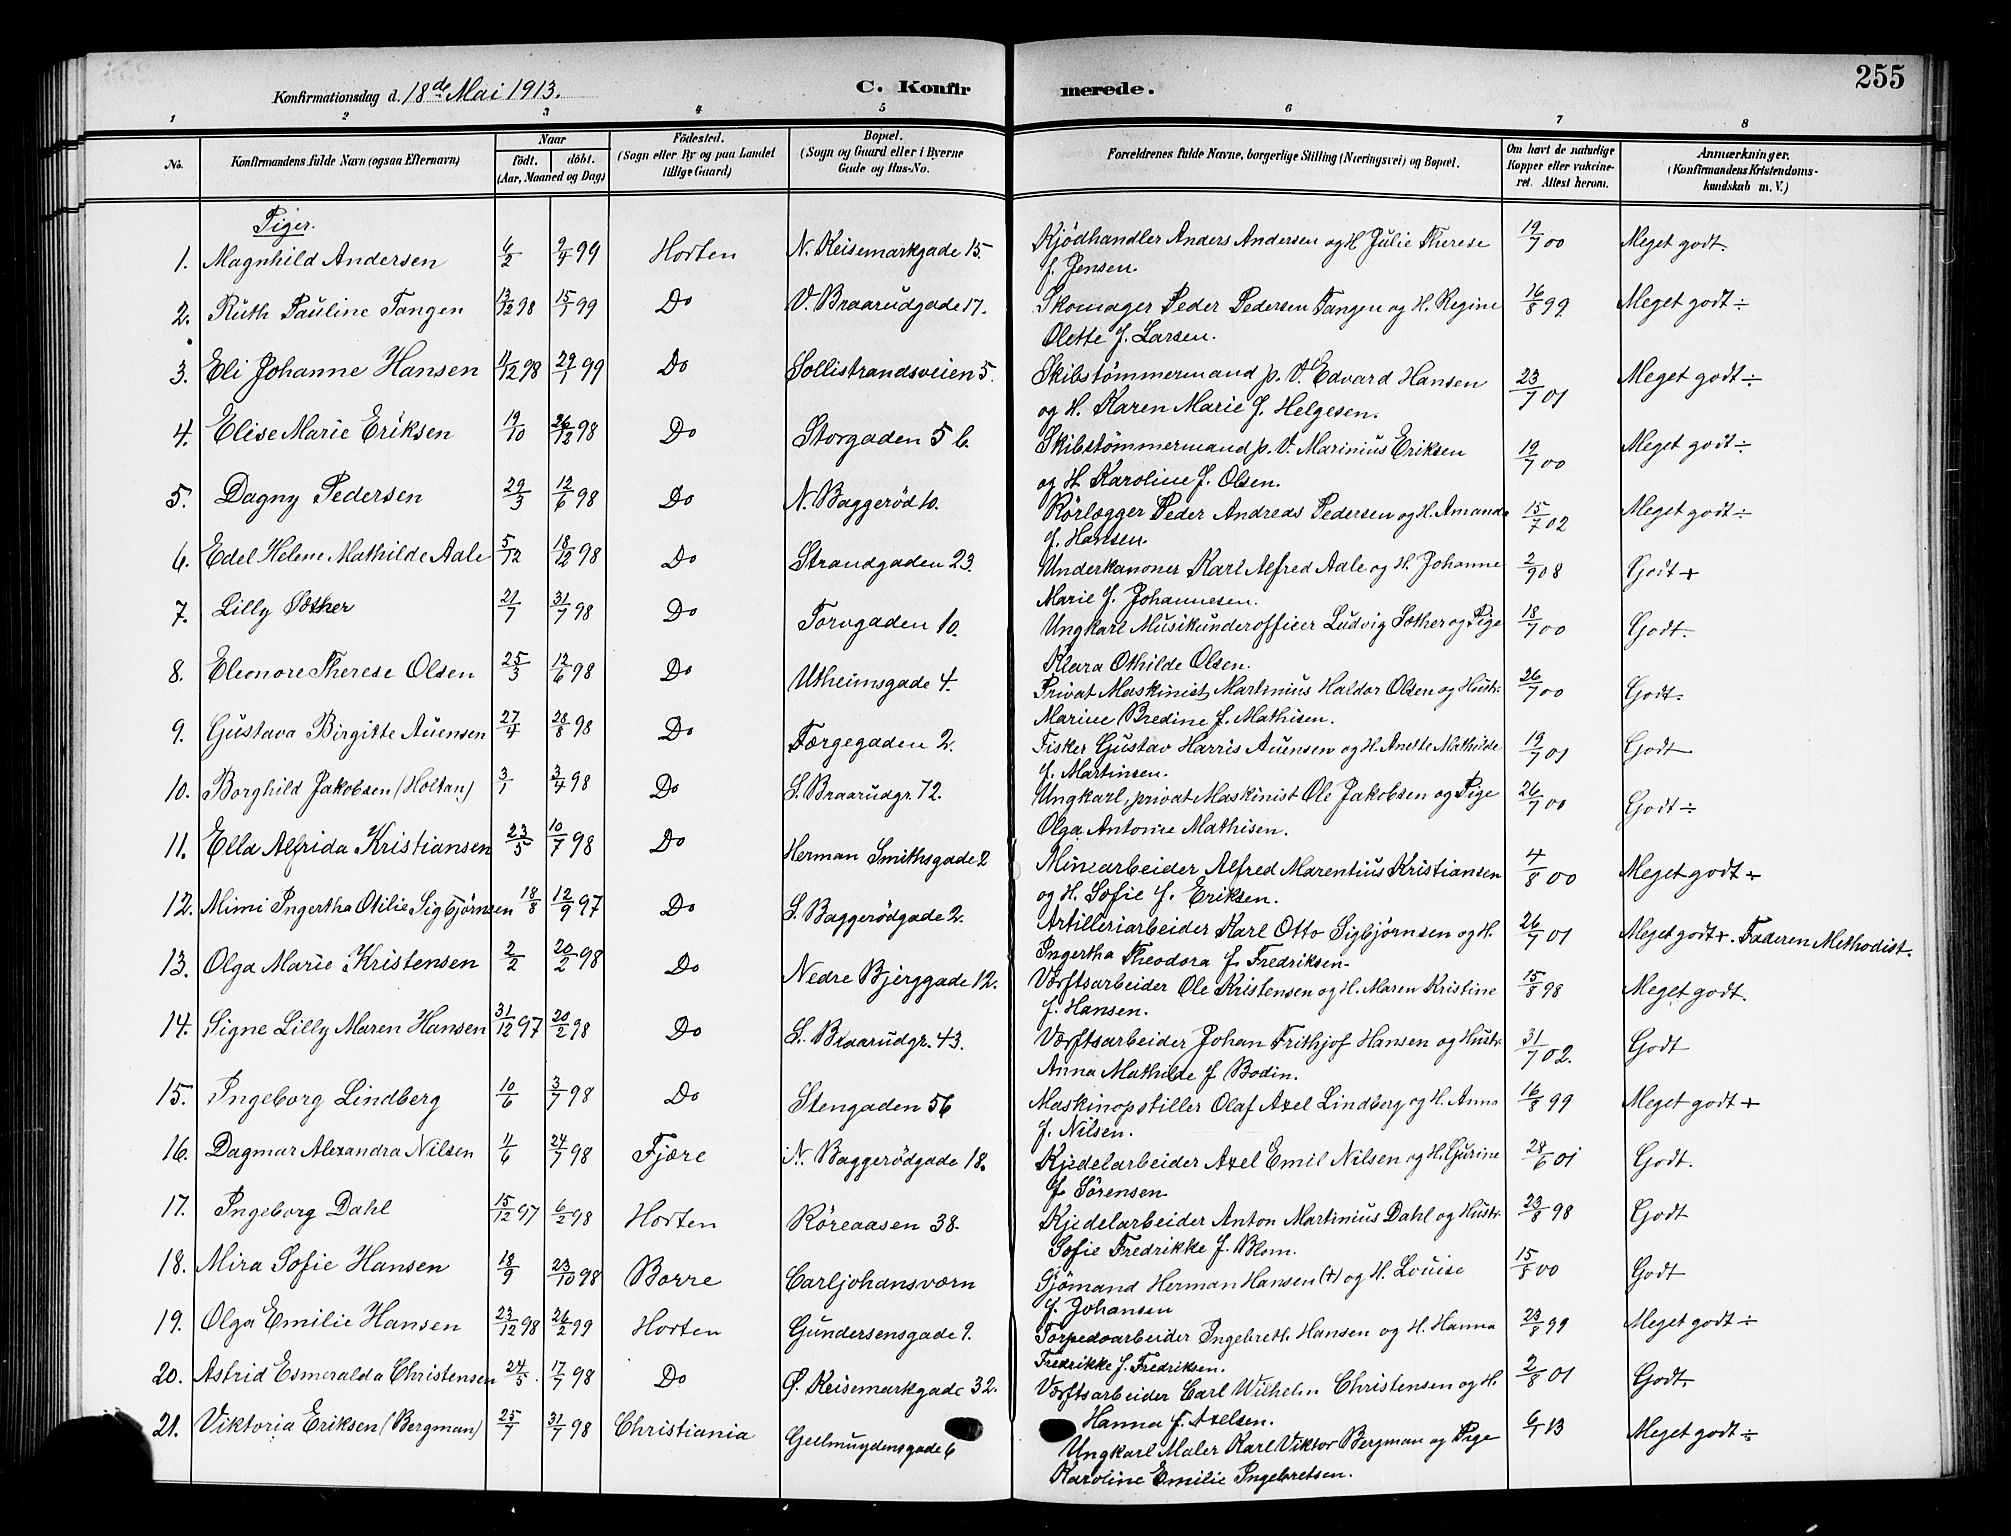 Konfirmationsdag d. 18de Mai 1913. C. Konfirmerede. 255
1 2 3 4 5 6 7 8
No. Konfirmandens fulde Navn (ogsaa Efternavn) Naar født. døbt. (Aar, Maaned og Dag) Födested. (Sogn eller By og paa Landet tillige Gaard) Bopæl. (Sogn og Gaard eller i Byerne Gade og Hus-No. Forældrenes fulde Navne, borgerlige Stilling (Næringsvei) og Bopæl. Om havt de naturlige Kopper eller vakcineret. Attest herom. Anmærkninger. (Konfirmandens Kristendomskundskab m. V.)
Piger.
1. Magnhild Andersen 6/2 9/4 99 Horten N. Keisemarkgade 15. Kjödhandler Anders Andersen og H. Julie Therese 19/7 00 Meget godt.
f. Jensen.
2. Ruth Pauline Tangen 13/12 98 15/1 99 Do V. Braarudgade 17. Skomager Peder Pedersen Tangen og H. Regine 16/8 99 Meget godt ÷
Olette f. Larsen.
3. Eli Johanne Hansen 4/12 98 29/1 99 Do Sollistrandsveien 5. Skibstömmermand p. V. Edvard Hansen 23/7 01 Meget godt ÷
og H. Karen Marie f. Helgesen.
4. Elise Marie Eriksen 19/10 26/12 98 Do Storgaden 5 b. Skibstömmermand p. V. Marinius Eriksen 19/7 00 Meget godt ÷
og H. Karoline f. Olsen.
5. Dagny Pedersen 29/3 12/6 98 Do N. Baggeröd 10. Rörlægger Peder Andreas Pedersen og H. Amanda 15/7 02 Meget godt ÷
f. Hansen.
6. Edel Helene Mathilde Aale 5/12 18/12 98 Do Strandgaden 23. Underkanoner Karl Alfred Aale og H. Johanne 2/9 08 Godt +
Marie f. Johannesen.
7. Lilly Sæther 21/7 31/7 98 Do Torvgaden 10. Ungkarl Musikunderofficer Ludvig Sæther og Pige 18/7 00 Godt.
Klara Othilde Olsen.
8. Eleonore Therese Olsen 25/3 12/6 98 Do Utheimsgade 4. Privat Maskinist Martinius Haldor Olsen og Hustr. 26/7 00 Godt ÷
Marine Bredine f. Mathisen.
9. Gustava Birgitte Auensen 27/4 28/8 98 Do Færgegaden 2. Fisker Gustav Harris Auensen og H. Anette Mathilde 19/7 01 Godt
f. Martinsen.
10. Borghild Jakobsen (Holtan) 3/1 3/4 98 Do S. Braarudgr. 72. Ungkarl, privat Maskinist Ole Jakobsen og Pige 26/7 00 Godt ÷
Olga Antonie Mathisen.
11. Ella Alfrida Kristiansen 23/5 10/7 98 Do Herman Smithsgade 2 Minearbeider Alfred Marentius Kristiansen 4/8 00 Meget godt +
og H. Sofie f. Eriksen.
12. Mimi Ingertha Otilie Sigbjørnsen 18/8 12/9 97 Do S. Baggerödgade 2. Artilleriarbeider Karl Otto Sigbjørnsen og H. 26/7 01 Meget godt +. Faderen Methodist.
Ingertha Theodora f. Fredriksen.
13. Olga Marie Kristensen 2/2 20/2 98 Do Nedre Bjerggade 12. Værftsarbeider Ole Kristensen og H. Maren Kristine 15/8 98 Meget godt.
f. Hansen.
14. Signe Lilly Maren Hansen 31/12 97 20/2 98 Do S. Braarudgr. 43. Værftsarbeider Johan Frithjof Hansen og Hustr. 31/7 02. Godt
Anna Mathilde f. Bodin.
15. Ingeborg Lindberg 10/6 3/7 98 Do Stengaden 56 Maskinopstiller Olaf Axel Lindberg og H. Anna 16/8 99 Meget godt +
f. Nilsen.
16. Dagmar Alexandra Nilsen 4/6 24/7 98 Fjære N. Baggerödgade 18. Kjedelarbeider Axel Emil Nilsen og H. Gurine 28/6 01 Godt.
f. Sörensen
17. Ingeborg Dahl 15/12 97 6/2 98 Horten Röreaasen 38. Kjedelarbeider Anton Martinius Dahl og Hustr. 23/8 98 Godt
Sofie Fredrikke f. Blom.
18. Mira Sofie Hansen 18/9 23/10 98 Borre Carljohansværn Sjömand Herman Hansen (+) og H. Louise 15/8 00 Godt
f. Johansen
19. Olga Emilie Hansen 23/12 98 26/2 99 Horten Gundersensgade 9. Torpedoarbeider Ingebreth Hansen og H. Hanna 23/8 99 Meget godt ÷
Fredrikke f. Fredriksen.
20. Astrid Esmeralda Christensen 24/5. 17/7 98 Do Ø. Keisemarkgade 32. Værftsarbeider Carl Wilhelm Christensen og H. 2/8 01 Godt.
Hanna f. Axelsen.
21. Viktoria Eriksen (Bergman) 25/7 31/7 98 Christiania Gellmuydensgade 6 Ungkarl Maler Karl Viktor Bergman og Pige 6/1 13 Meget godt ÷
Karoline Emilie Ingebretsen.